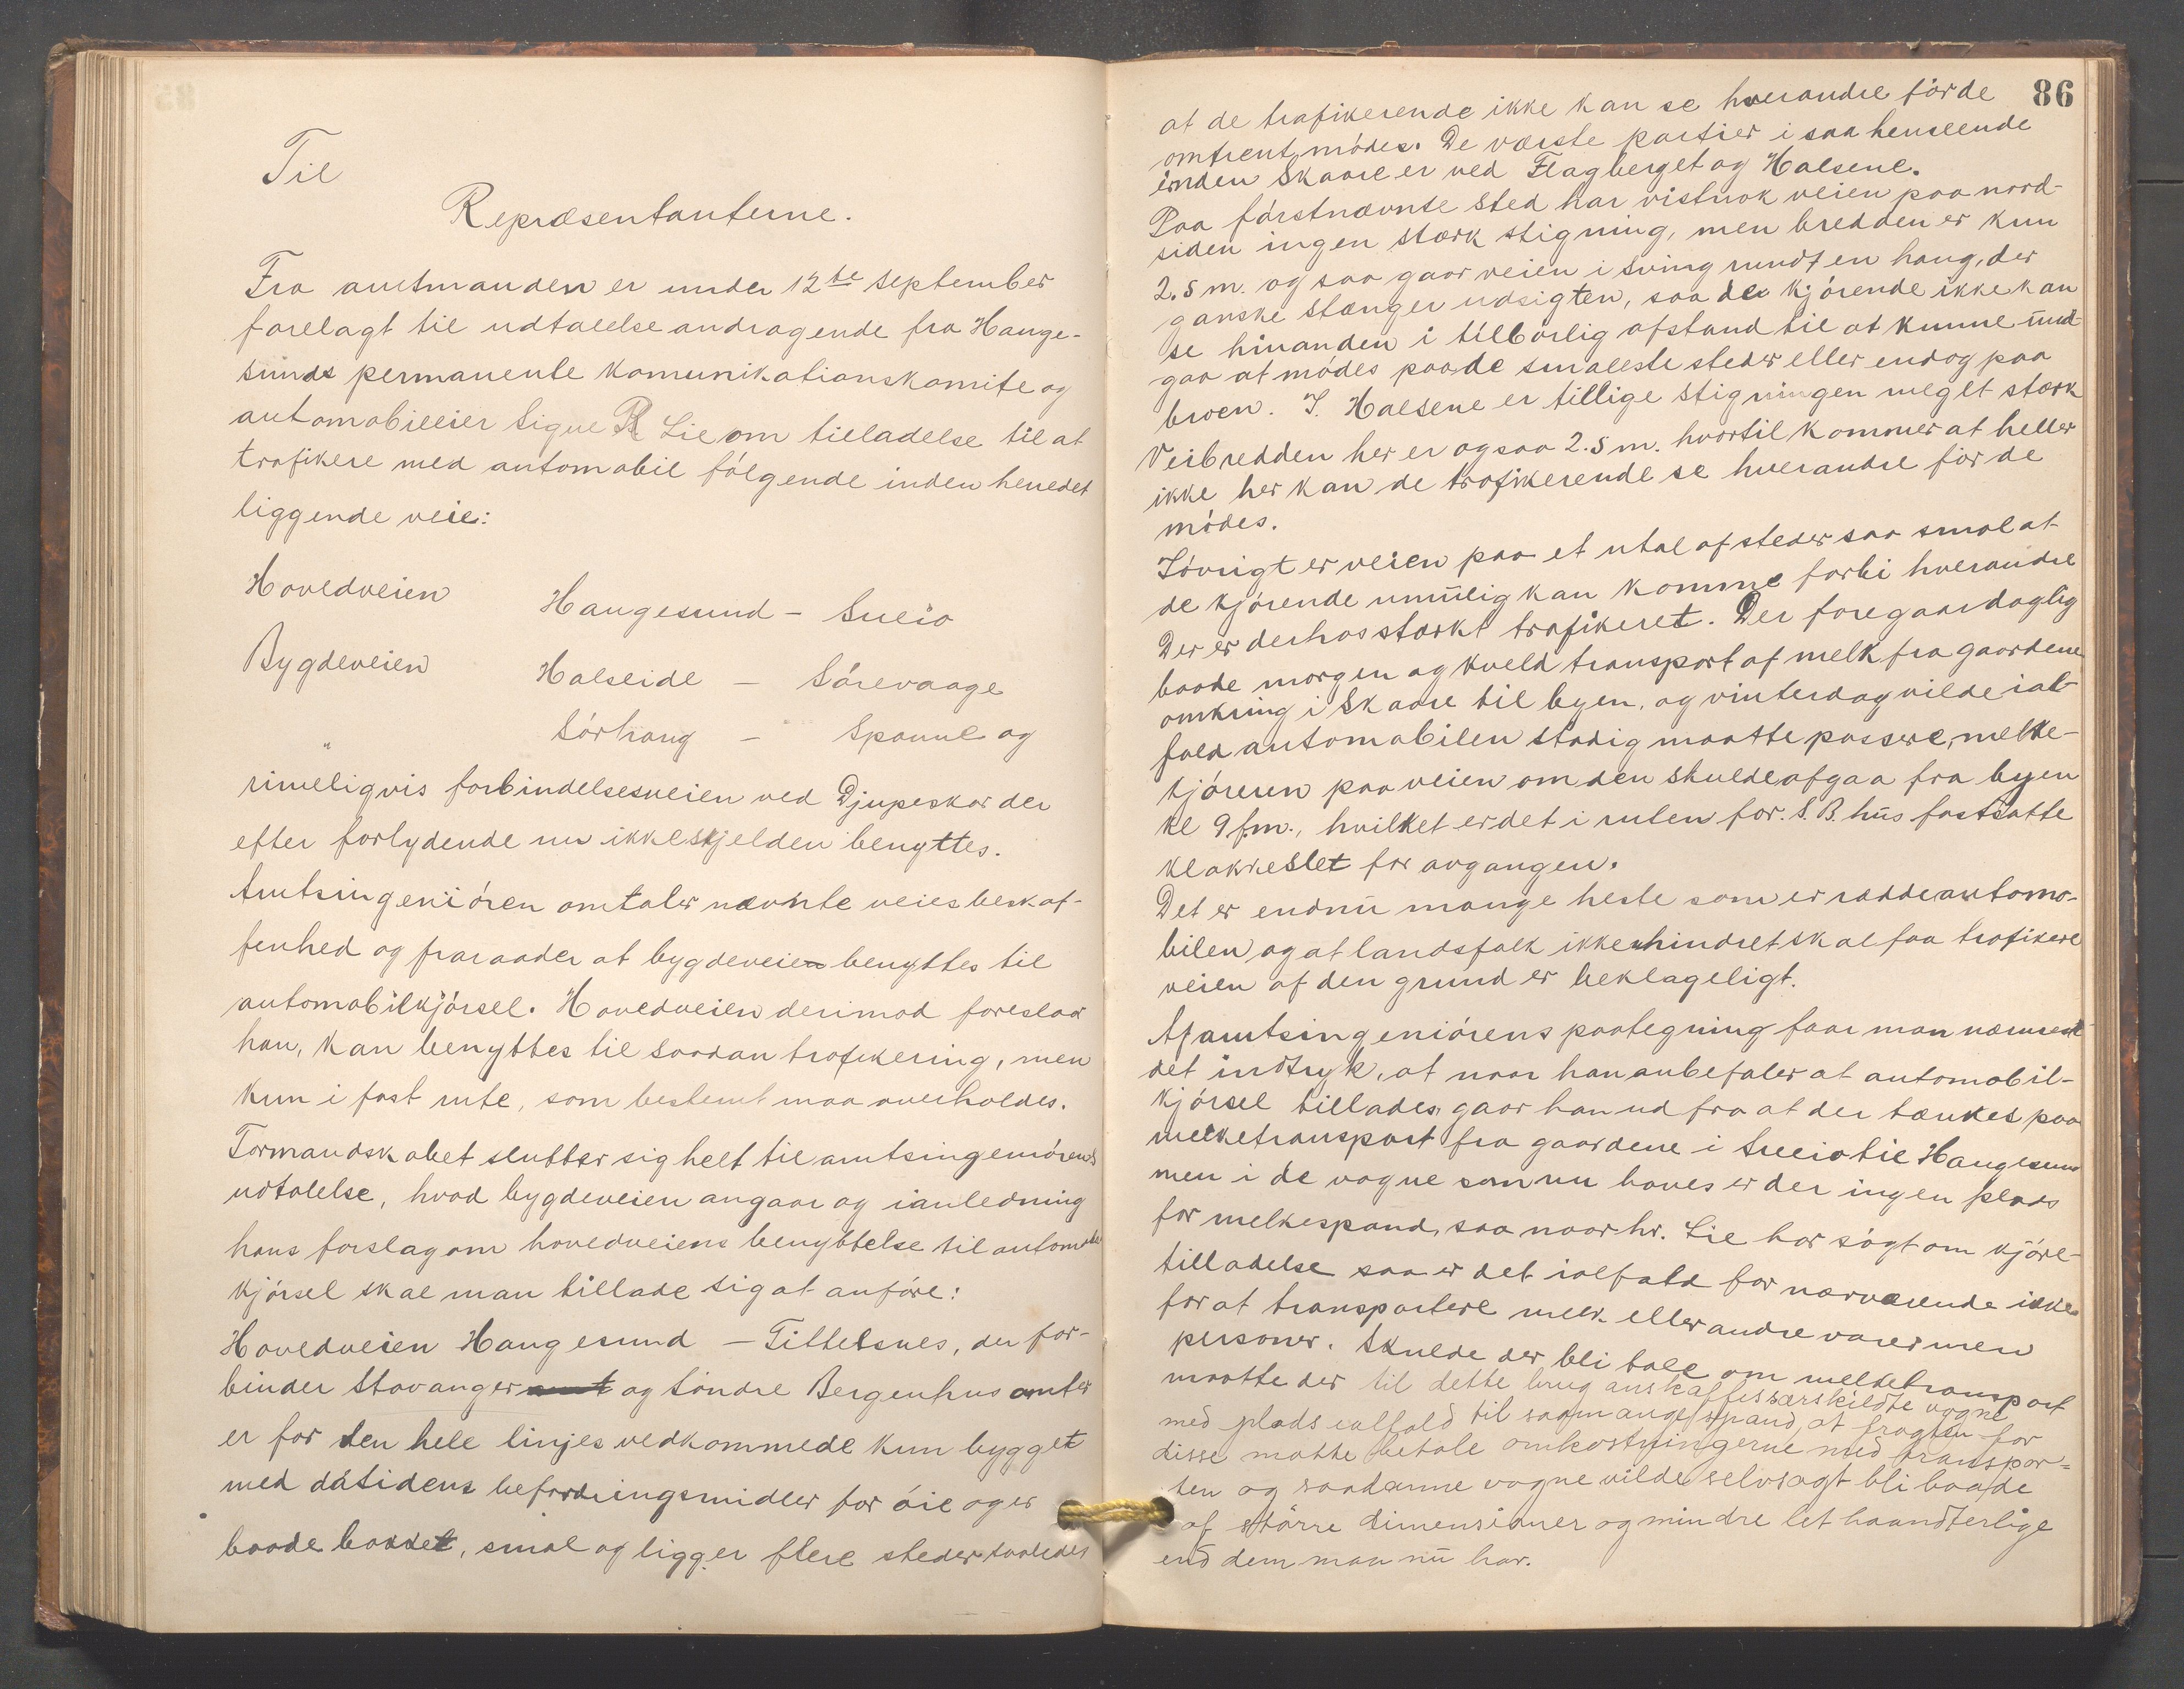 Til
Repræsentanterne.
Fra amtmanden er under 12te September
forelagt til udtalelse andragende fra Hauge-
sunds permanente Komunikationskomite og
automobileier Sigue R Lie om tilladelse til at
trafikere med automobil følgende inden herredet
liggende veie:
Hovedveien Haugesund - Sveio
Bygdeveien Halseide - Sørevaage
" Sørhaug - Spanne og
rimeligvis forbindelsesveien ved Djupeskar der
efter forlydende nu ikke skjelden benyttes.
Amtsingeniøren omtaler nævnte veies beskaf-
fenhed og fraraader at bygdeveien benyttes til
automobilkjørsel. Hovedveien derimod foreslaar
han, kan benyttes til saadan trafikering, men
kun i fast rute, som bestemt maa overholdes.
Formandskabet slutter sig helt til amtsingeniørens
udtalelse, hvad bygdeveien angaar og ianledning
hans forslag om hovedveiens benyttelse til automobil
kjørsel skal man tillade sig at anføre:
Hovedveien Haugesund - Tittelsnes, der for-
binder Stavanger amt og Søndre Bergenhus amter
er for den hele linjes vedkommede kun bygget
med datidens befordringsmidler for øie og er
baade bakket, smal og ligger flere steder saaledes
86
at de trafikerende ikke kan se hverandre før de
omtrent mødes. De værste partier i saa henseende
inden Skaare er ved Flagberget og Halsene.
Paa førstnævnte sted har vistnok veien paa nord-
siden ingen stærk stigning, men bredden er kun
2.5 m. og saa gaar veien i sving rundt en haug, der
ganske stænger udsigten, saa de kjørende ikke kan
se hinanden i tilbørlig afstand til at kunne und-
gaa at mødes paa de smaleste steder eller endog paa
broen. I. Halsene er tillige stigningen meget stærk
Veibredden her er ogsaa 2.5 m. hvortil kommer at heller
ikke her kan de trafikerende se hverandre før de
mødes.
Iøvrigt er veien paa et utal af steder saa smal at
de kjørende umulig kan komme forbi hverandre
Der er derhos stærkt trafikeret. Der foregaar daglig
baade morgen og kveld transport af melk fra gaardene
omkring i Skaare til byen, og vinterdag vilde ial-
fald automobilen stadig maatte passere, melke-
kjøreren paa veien om den skulde afgaa fra byen
kl 9 f.m., hvilket er det i ruten for. S. B. hus fastsatte
klokkeslet for avgangen.
Det er endnu mange heste som er rædde automo-
bilen og at landsfolk ikke uhindret skal faa trafikere
veien af den grund er beklageligt.
Af amtsingeniørens paategning faar man nærmest
det indtryk, at naar han anbefaler at automobil-
kjørsel tillades, gaar han ud fra at der tænkes paa
melketransport fra gaardene i Sveio til Haugesund
men i de vogne som nu haves er der ingen plads
for melkespand, saa naar hr. Lie har søgt om kjøre-
tilladelse saa er det ialfald for nærværende ikke
for at transportere melk eller andre varer men
personer. Skulde der bli tale om melketransport
maatte der til dette brug anskaffes særskildte vogne
med plads ialfald til saa mange spand, at fragten for
disse matte betale omkostningerne med transpor=
ten og saadanne vogne vilde selvsagt bli baade
af større dimensioner og mindre let haandterlige
end dem man nu har.